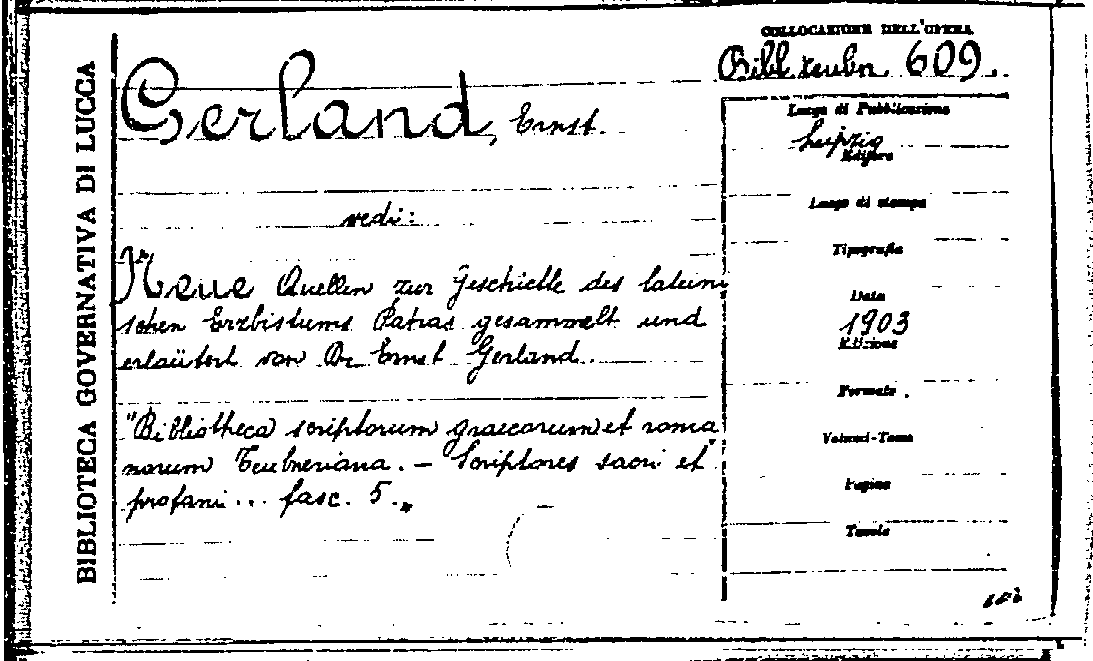 BIBLIOTECA GOVERNATIVA DI LUCCA
COLLOCAZIONE DELL'OPERA
Bibl. teubn. 609.
Gerland, Ernst.
vedi:
Neue Quellen zur Geschichte des lateini
schen Erzbistums Patras gesammelt und
erlaütert von Dr Ernst Gerland.
"Bibliotheca scriptorum graecorum et roma
norum Teubneriana. – Scriptores sacri et
profani... fasc. 5."
Luogo di Pubblicazione
Leipzig
Editore
Luogo di stampa
Tipografia
Data
1903
Edizione
Formato
Volumi-Tomo
Pagine
Tavole